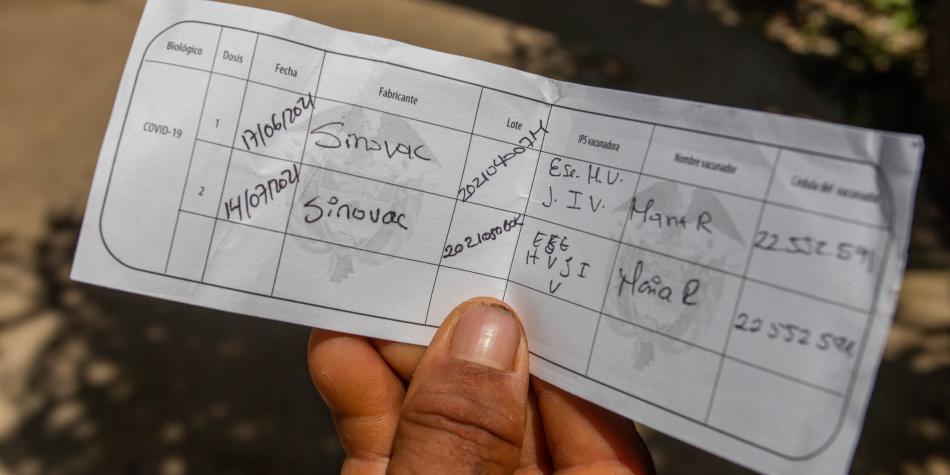 Biológico Dosis Fecha Fabricante Lote IPS vacunadora Nombre vacunador Cédula del vacunador
COVID-19 1 17/06/2021 Sinovac Ese. H.V. J. I V. Maria R 22.552.591
2 14/07/2021 Sinovac ESE H V J I V Maria R 22552591